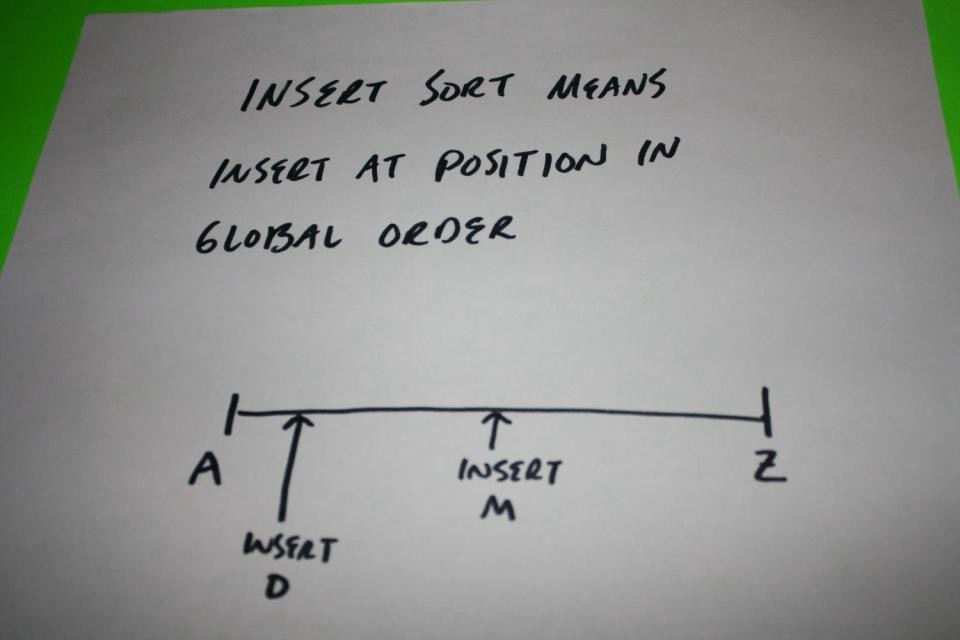 INSERT SORT MEANS
INSERT AT POSITION IN
GLOBAL ORDER
A
Z
INSERT
M
INSERT
D